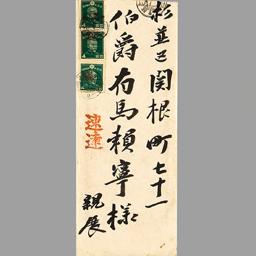 杉並区関根町七十一
伯爵有馬頼寧様
親展
速達